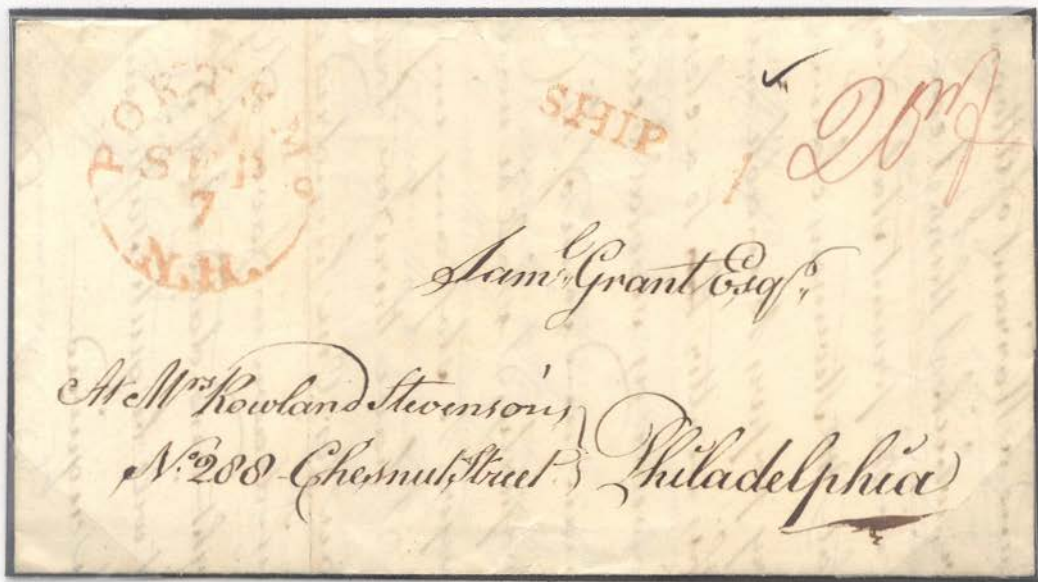 PORTSMO
SEP
7
N.H.
SHIP
20
Saml. Grant Esqr.
At Mrs Rowland Stevenson's
No. 288 Chesnut Street
Philadelphia